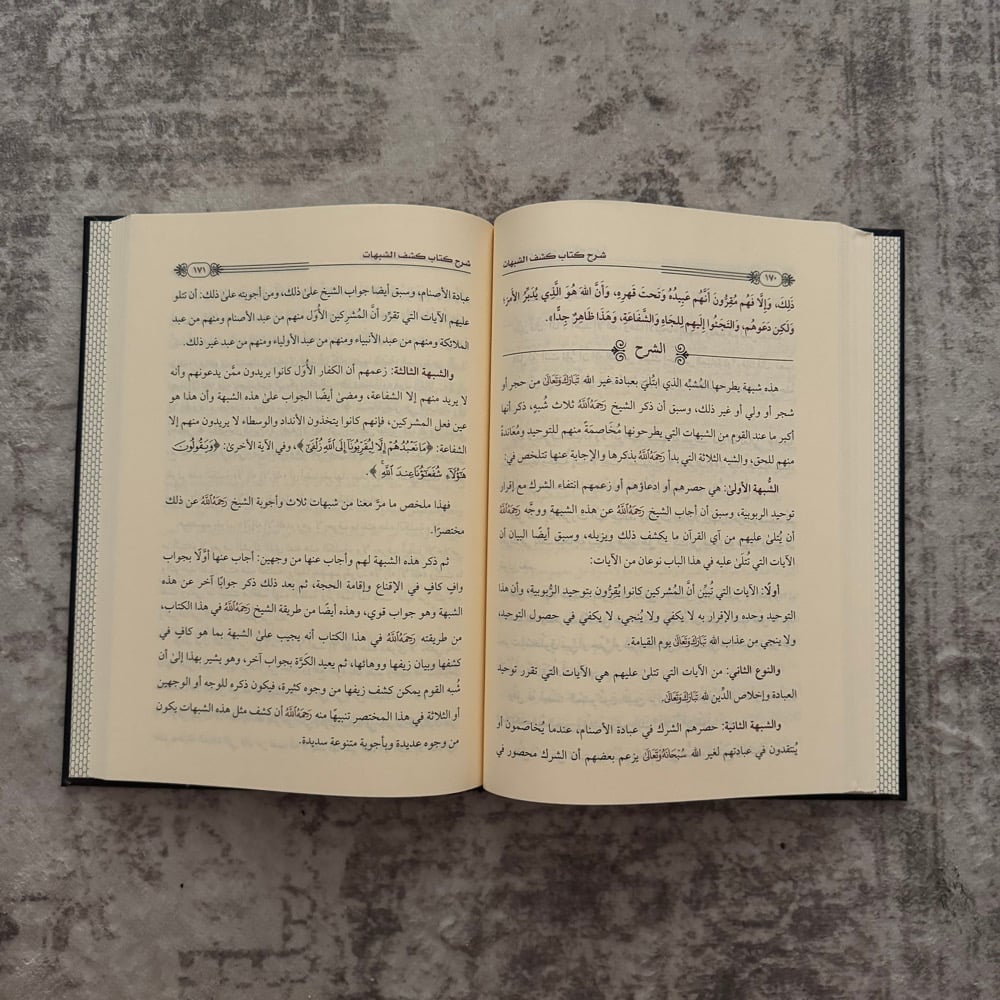 شرح كتاب كشف الشبهات
١٧٠
ذَلِكَ، وَإِلَّا فَهُم مُقِرُّونَ أَنَّهُم عَبِيدُهُ وَتَحتَ قَهرِهِ، وَأَنَّ اللهَ هُوَ الَّذِي يُدَبِّرُ الأَمرَ؛
وَلَكِن دَعَوهُم، وَالتَجَئُوا إِلَيهِم لِلجَاهِ وَالشَّفَاعَةِ، وَهَذَا ظَاهِرٌ جِدًّا».
الشرح
هذه شبهة يطرحها المُشبِّه الذي ابتُليَ بعبادة غير الله تَبَارَكَ وَتَعَالَى من حجر أو
شجر أو ولي أو غير ذلك، وسبق أن ذكر الشيخ رَحِمَهُ اللَّهُ ثلاث شُبهٍ، ذكر أنها
أكبر ما عند القوم من الشبهات التي يطرحونها مُخاصَمةً منهم للتوحيد ومُعاندةً
منهم للحق، والشبه الثلاثة التي بدأ رَحِمَهُ اللَّهُ بذكرها والإجابة عنها تتلخص في:
الشُّبهة الأولىٰ: هي حصرهم أو ادعاؤهم أو زعمهم انتفاء الشرك مع إقرار
توحيد الربوبية، وسبق أن أجاب الشيخ رَحِمَهُ اللَّهُ عن هذه الشبهة ووجَّه رَحِمَهُ اللَّهُ
أن يُتلىٰ عليهم من آي القرآن ما يكشف ذلك ويزيله، وسبق أيضًا البيان أن
الآيات التي تُتلَىٰ عليه في هذا الباب نوعان من الآيات:
أولًا: الآيات التي تُبيِّن أنَّ المُشركين كانوا يُقرُّون بتوحيد الرُّبوبية، وأن هذا
التوحيد وحده والإقرار به لا يكفي ولا يُنجي، لا يكفي في حصول التوحيد،
ولا ينجي من عذاب الله تَبَارَكَ وَتَعَالَى يوم القيامة.
والنوع الثاني: من الآيات التي تتلىٰ عليهم هي الآيات التي تقرر توحيد
العبادة وإخلاص الدِّين لله تَبَارَكَ وَتَعَالَى.
والشبهة الثانية: حصرهم الشرك في عبادة الأصنام، عندما يُخاصَمون أو
يُنتقدون في عبادتهم لغير الله سُبْحَانَهُ وَتَعَالَى يزعم بعضهم أن الشرك محصور في
شرح كتاب كشف الشبهات
١٧١
عبادة الأصنام، وسبق أيضا جواب الشيخ علىٰ ذلك، ومن أجوبته علىٰ ذلك: أن تتلو
عليهم الآيات التي تقرِّر أنَّ المُشرِكين الأُوَل منهم من عبد الأصنام ومنهم من عبد
الملائكة ومنهم من عبد الأنبياء ومنهم من عبد الأولياء ومنهم من عبد غير ذلك.
والشبهة الثالثة: زعمهم أن الكفار الأُوَل كانوا يريدون ممَّن يدعونهم وأنه
لا يريد منهم إلا الشفاعة، ومضىٰ أيضًا الجواب علىٰ هذه الشبهة وأن هذا هو
عين فعل المشركين، فإنهم كانوا يتخذون الأنداد والوسطاء لا يريدون منهم إلا
الشفاعة: ﴿مَا نَعْبُدُهُمْ إِلَّا لِيُقَرِّبُونَآ إِلَى ٱللَّهِ زُلْفَىٰٓ﴾، وفي الآية الأخرىٰ: ﴿وَيَقُولُونَ
هَٰٓؤُلَآءِ شُفَعَٰٓؤُنَا عِندَ ٱللَّهِ﴾.
فهذا ملخص ما مرَّ معنا من شبهات ثلاث وأجوبة الشيخ رَحِمَهُ اللَّهُ عن ذلك
مختصرًا.
ثم ذكر هذه الشبهة لهم وأجاب عنها من وجهين: أجاب عنها أوَّلًا بجواب
وافٍ كافٍ في الإقناع وإقامة الحجة، ثم بعد ذلك ذكر جوابًا آخر عن هذه
الشبهة وهو جواب قوي، وهذه أيضًا من طريقة الشيخ رَحِمَهُ اللَّهُ في هذا الكتاب،
من طريقته رَحِمَهُ اللَّهُ في هذا الكتاب أنه يجيب علىٰ الشبهة بما هو كافٍ في
كشفها وبيان زيفها ووهائها، ثم يعيد الكَرَّة بجواب آخر، وهو يشير بهذا إلىٰ أن
شُبه القوم يمكن كشف زيفها من وجوه كثيرة، فيكون ذكره للوجه أو الوجهين
أو الثلاثة في هذا المختصر تنبيهًا منه رَحِمَهُ اللَّهُ أن كشف مثل هذه الشبهات يكون
من وجوه عديدة وبأجوبة متنوعة سديدة.